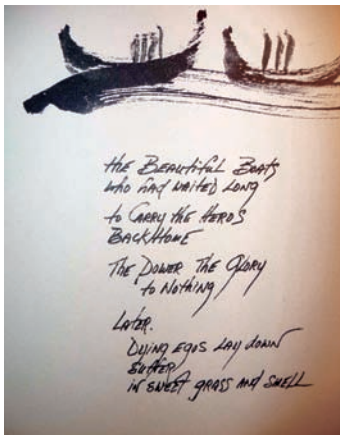 the Beautiful Boats
who had waited long
to Carry the Heros
Back Home
The Power The Glory
to Nothing
Later.
Dying egos lay down
suffer
in sweet grass and smell